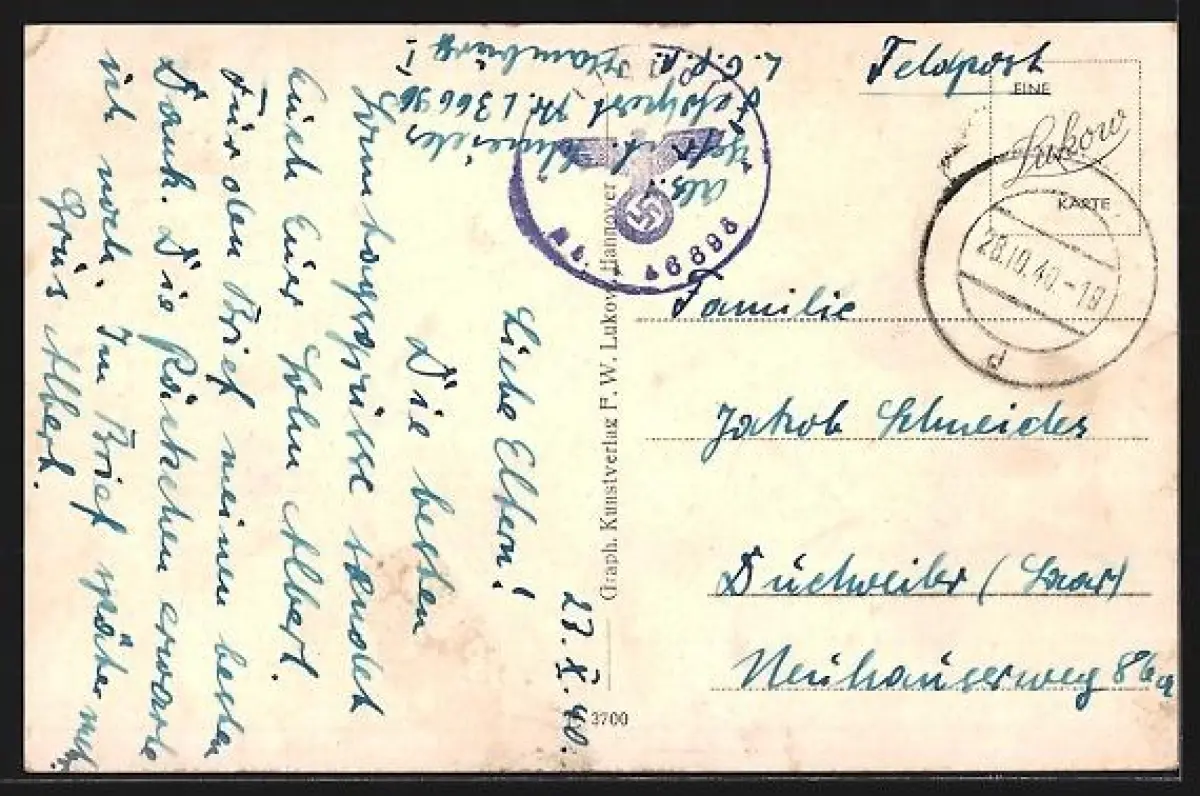 Feldpost
EINE
Lukow
KARTE
28.10.40.-18
d
Abs.
Gefr. A. Schneider
Feldpost Nr. L 36696
L.G.P.A. Hamburg 1
Nr. 46698
Familie
Jakob Schneider
Dudweiler (Saar)
Neuhauserweg 86a
Graph. Kunstverlag F. W. Lukow, Hannover
3700
27.X.40.
Liebe Eltern!
Die besten
Sonntagsgrüsse sendet
Euch Euer Sohn Albert.
Für den Brief meinen besten
Dank. Die Päckchen erwarte
ich noch. Im Brief später mehr.
Grüs Albert.